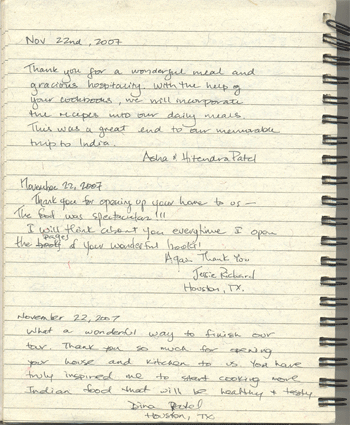 Nov 22nd, 2007
Thank you for a wonderful meal and
gracious hospitality. With the help of
your cookbooks, we will incorporate
the recipes into our daily meals.
This was a great end to our memorable
trip to India.
Asha & Hitendra Patel
November 22, 2007
Thank you for opening up your home to us —
The food was spectacular!!!
I will think about you everytime I open
the pages of your wonderful books!
Again Thank You
Jessie Richard
Houston, TX.
November 22, 2007
What a wonderful way to finish our
tour. Thank you so much for opening
your house and kitchen to us. You have
truly inspired me to start cooking more
Indian food that will be healthy & tasty
Dina Patel
Houston, TX